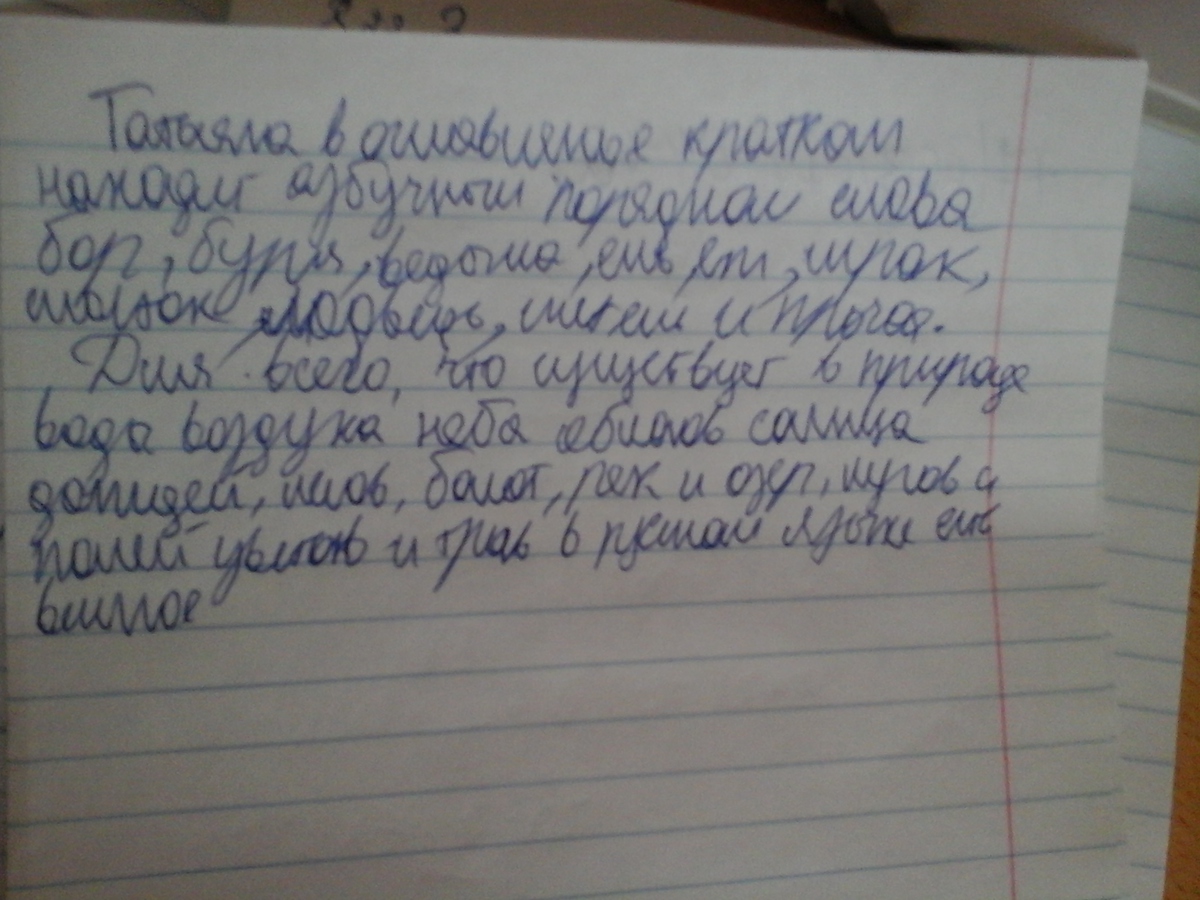 Татьяна в оглавленье кратком
находит азбучным порядком слова
бор, буря, ведьма, ель, еж, мрак,
мосток медведь, метель и прочая.
Для всего, что существует в природе
вода воздуха неба облаков солнца
дождей, лесов, болот, рек и озер, лугов и
полей цветов и трав в русском языке есть